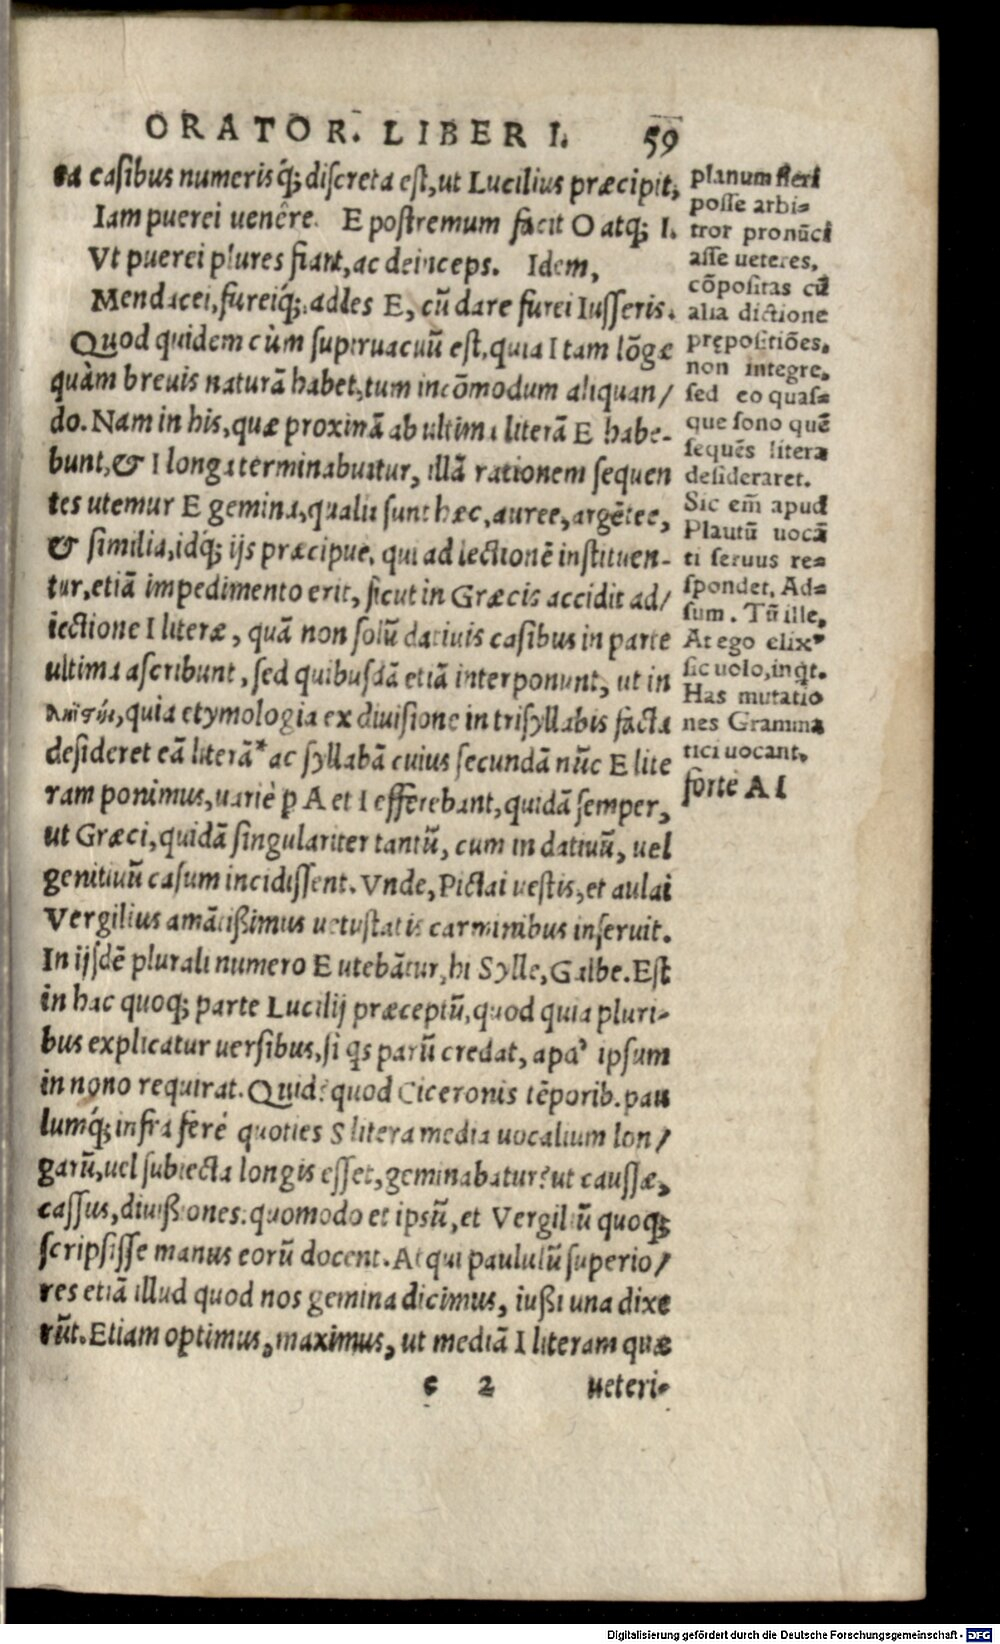 ORATOR. LIBER I. 59
ea casibus numerisq́; discreta est, ut Lucilius præcipit,
Iam puerei uenêre. E postremum facit O atq; I.
Vt puerei plures fiant, ac deinceps. Idem,
Mendacei, fureiq́;, addes E, cũ dare furei Iusseris.
Quod quidem cùm superuacuũ est, quia I tam lõgæ
quàm breuis naturã habet, tum incõmodum aliquan/
do. Nam in his, quæ proximã ab ultima literã E habe-
bunt, & I longa terminabuntur, illã rationem sequen
tes utemur E gemina, qualia sunt hæc, auree, argẽtee,
& similia, idq́; ijs præcipue, qui ad lectionẽ instituen-
tur, etiã impedimento erit, sicut in Græcis accidit ad/
iectione I literæ, quã non solũ datiuis casibus in parte
ultima ascribunt, sed quibusdã etiã interponunt, ut in
ΛΗΙΣΤΗΙ, quia etymologia ex diuisione in trisyllabis facta
desideret eã literã* ac syllabã cuius secundã nũc E lite
ram ponimus, uariè p A et I efferebant, quidã semper,
ut Græci, quidã singulariter tantũ, cum in datiuũ, uel
genitiuũ casum incidissent. Vnde, Pictai uestis, et aulai
Vergilius amãtißimus uetustatis carminibus inseruit.
In ijsdẽ plurali numero E utebãtur, hi Sylle, Galbe. Est
in hac quoq; parte Lucilij præceptũ, quod quia pluri-
bus explicatur uersibus, si qs parũ credat, apd' ipsum
in nono requirat. Quid? quod Ciceronis tẽporib. pau
lumq́; infra ferè quoties S litera media uocalium lon/
garũ, uel subiecta longis esset, geminabatur? ut caussæ,
cassus, diuißiones. quomodo et ipsũ, et Vergiliũ quoq;
scripsisse manus eorũ docent. Atqui paululũ superio/
res etiã illud quod nos gemina dicimus, iußi una dixe
rũt. Etiam optimus, maximus, ut mediã I literam quæ
c 2 ueteri-
planum fieri
posse arbi=
tror pronũci
asse ueteres,
cõpositas cũ
alia dictione
prępositiões,
non integre,
sed eo quas=
que sono quẽ
sequẽs litera
desideraret.
Sic em̃ apud
Plautũ uocã
ti seruus re=
spondet, Ad=
sum. Tũ ille,
At ego elix'
sic uolo, inqt.
Has mutatio
nes Gramma
tici uocant.
forte A I
Digitalisierung gefördert durch die Deutsche Forschungsgemeinschaft - DFG